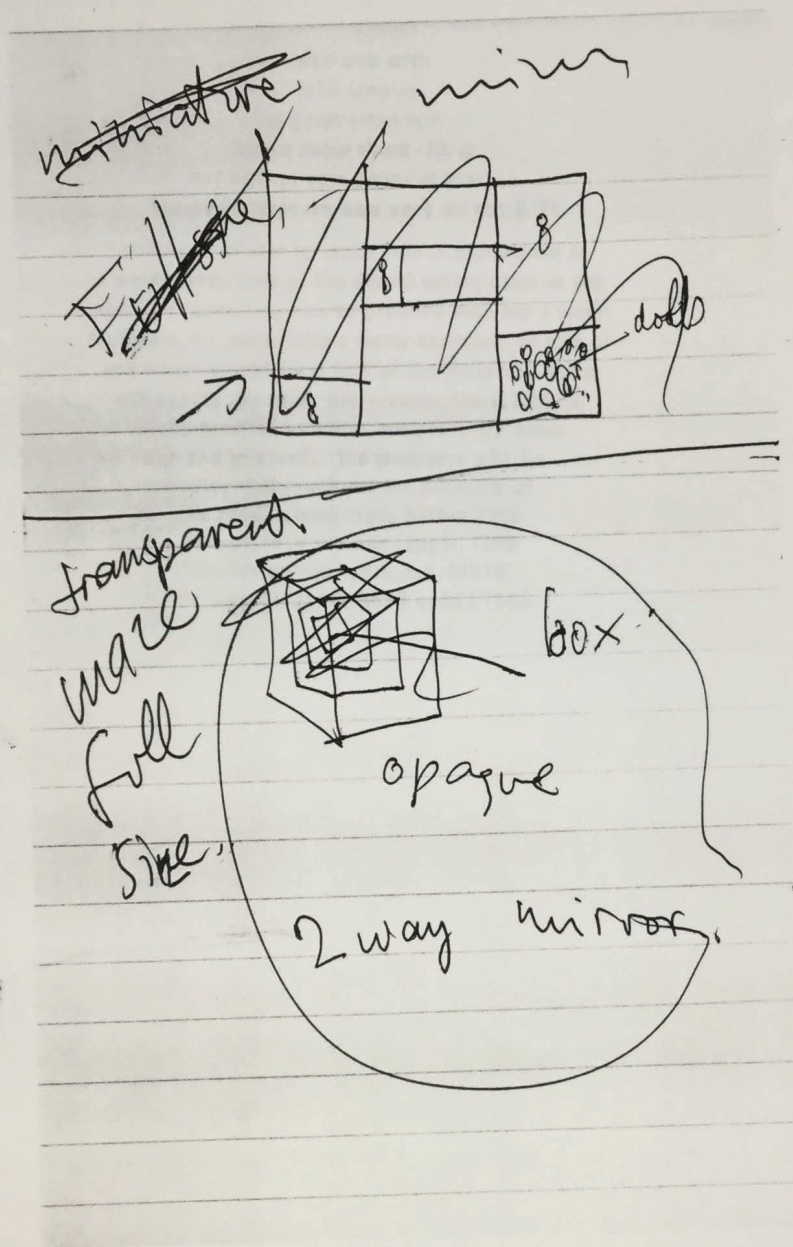 miniature
Full size
8
8
8
dolls
transparent
maze
full
size.
box.
opaque
2 way mirror.